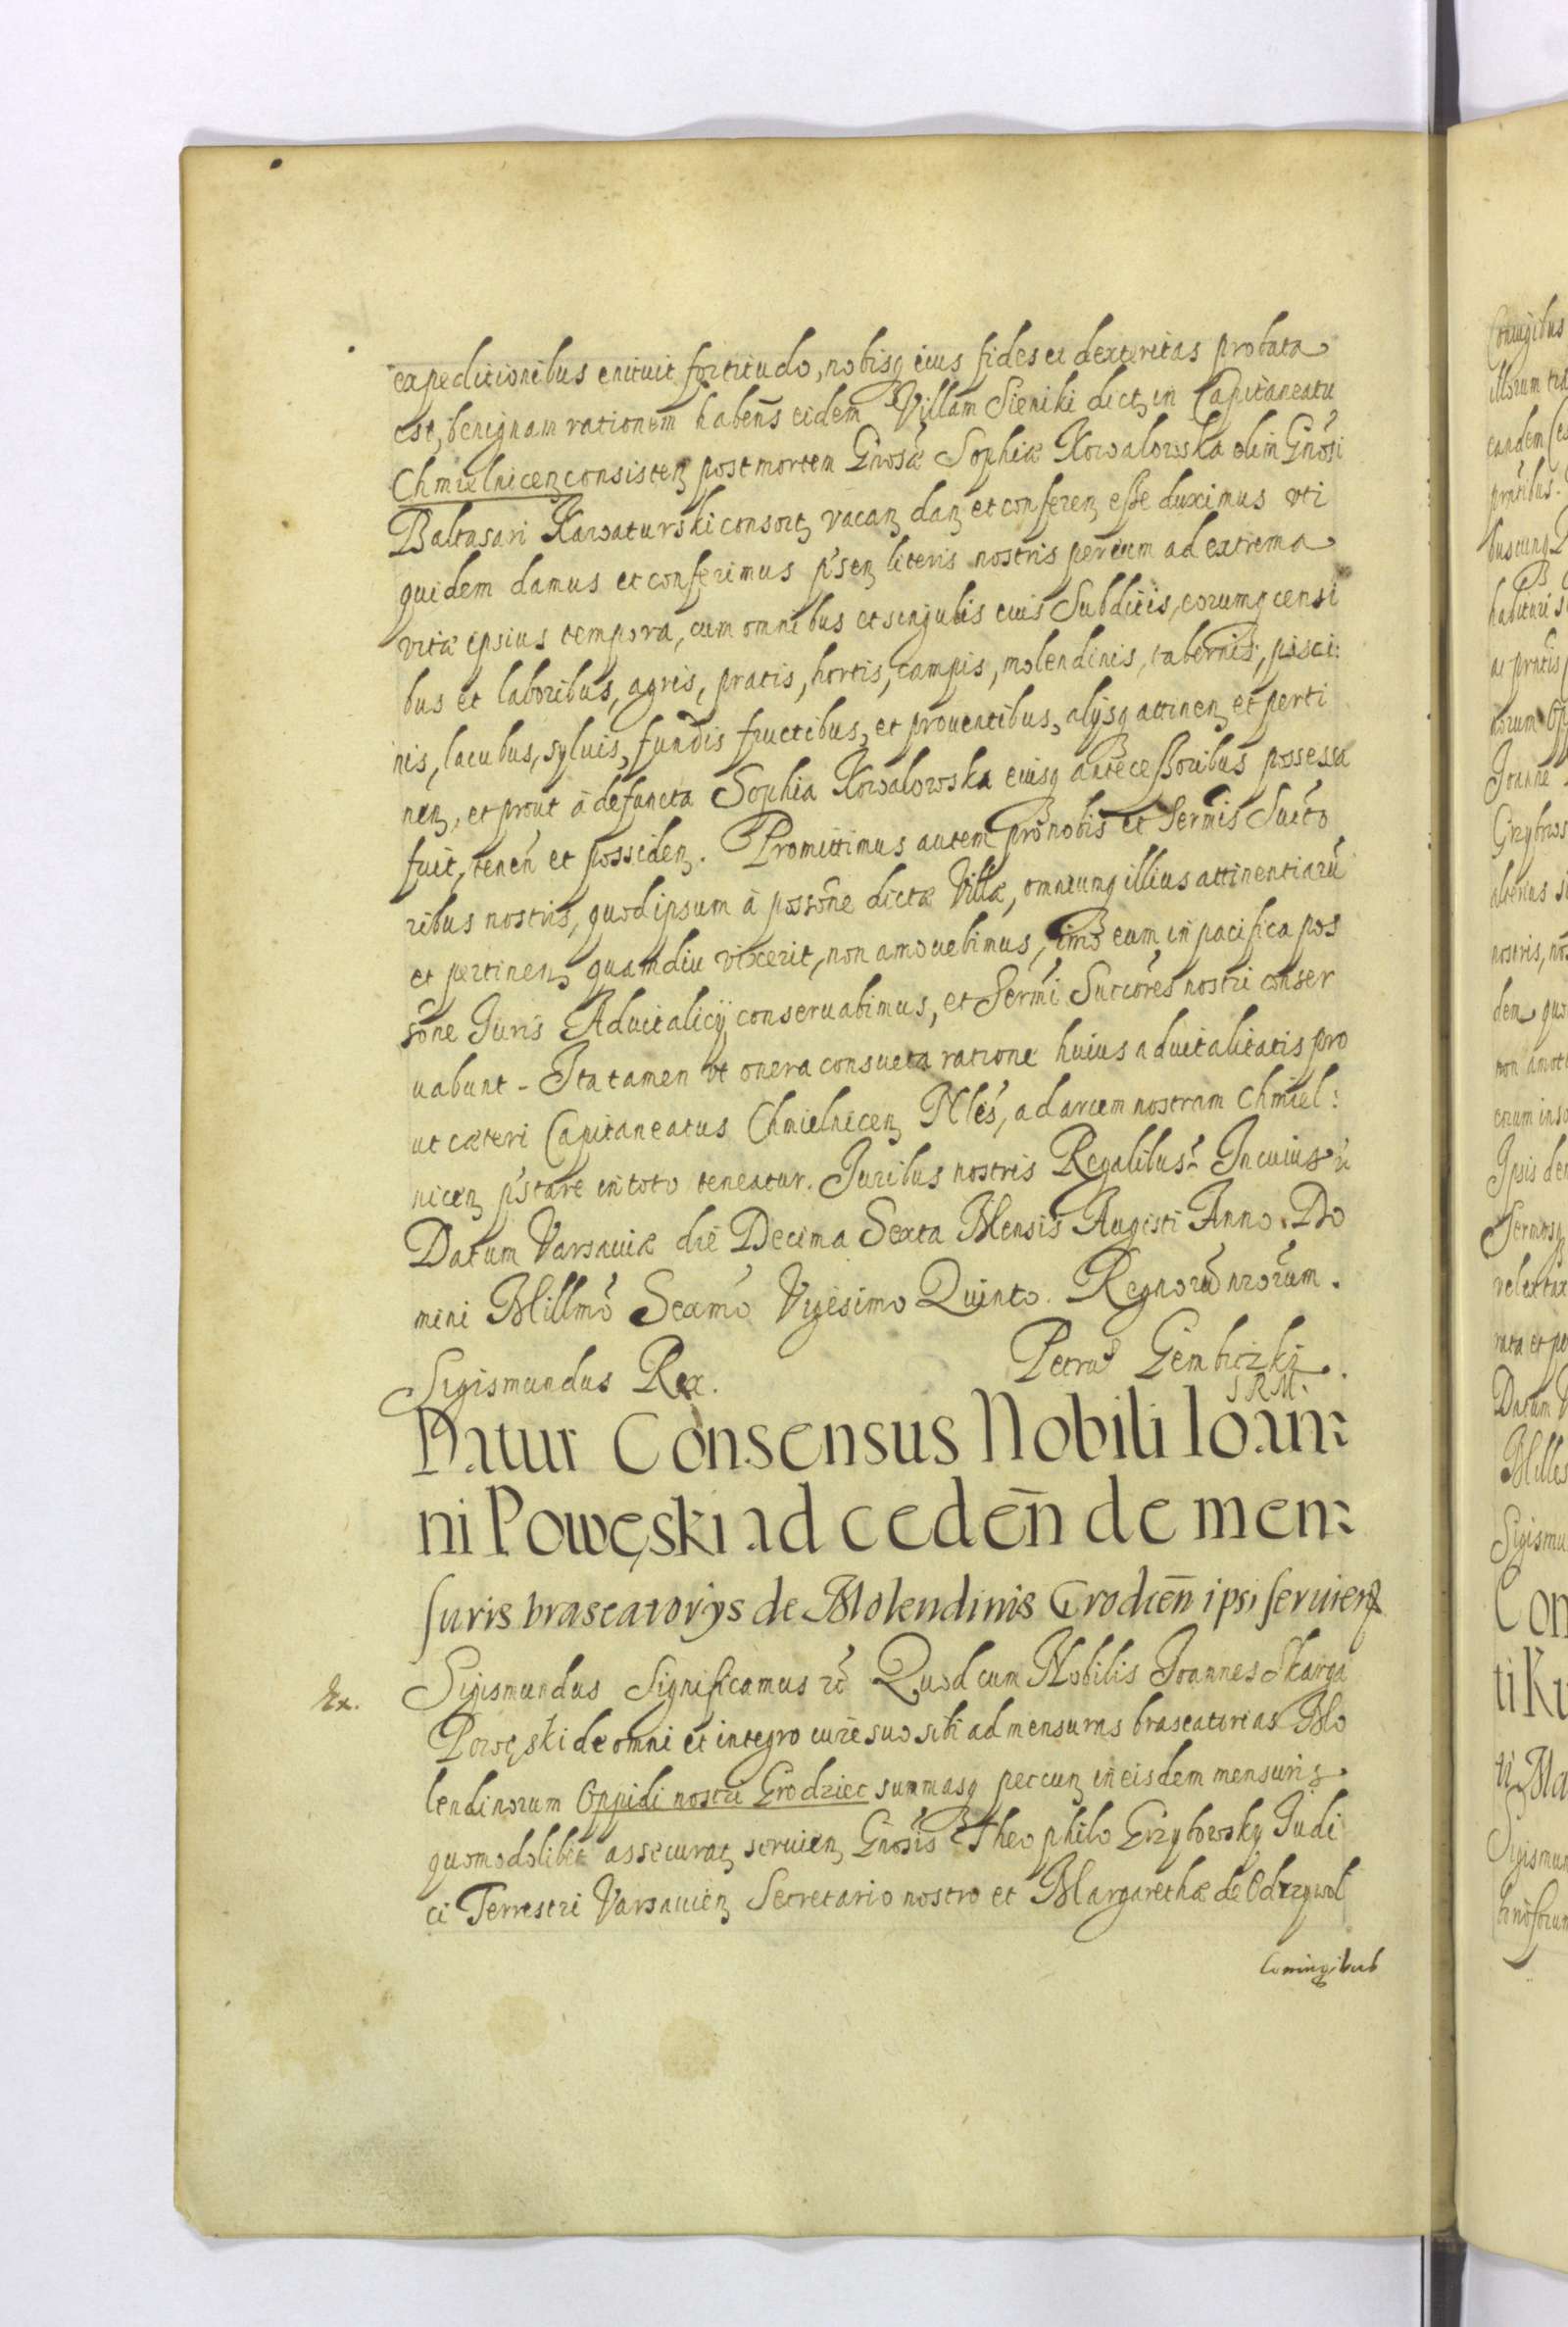 expeditionibus enituit fortitudo, nobisq eius fides et dexteritas probata
est, benignam rationem habens eidem Villam Sieniki dict in Capitaneatu
Chmielnicen consisten post mortem Gnosæ Sophiæ Kowalowska olim Gnosi
Baltasari Kawaturski consort vacan dan et conferen esse duximus vti
quidem damus et conferimus p'sen literis nostris pereum ad extrema
vitæ ipsius tempora, cum omnibus et singulis euis Subditis, eorumq censi
bus et laboribus, agris, pratis, hortis, campis, molendinis, tabernis, pisci:
nis, lacubus, syluis, fundis fructibus, et prouentibus, alijsq attinen et perti
nen, et prout à defuncta Sophia Kowalowska eiusq antecessoribus possessa
fuit, tenen et possiden. Promittimus autem pro nobis et Sermis Sucto
ribus nostris, quod ipsum à possone dictæ Villæ, omniumq illius attinentiarū
et pertinen quamdiu vixerit, non amouebimus, imo eum in pacifica pos
sone Iuris Aduitalicij conseruabimus, et Sermi Succores nostri conser
uabunt - Ita tamen vt onera consueta ratione huius aduitalitatis pro
ut cæteri Capitaneatus Chmielnicen Nles, ad arcem nostram Chmiel:
nicen p'stare in toto teneatur. Iuribus nostris Regalibus Incuius rei
Datum Varsauiæ die Decima Sexta Mensis Augusti Anno Do
mini Millmo Sexmo Vigesimo Quinto. Regnorū nrorum.
Sigismundus Rex. Petrus Gembiczki.
S R M.
Datur Consensus Nobili Ioan:
ni Powęski ad ceden̄ de men:
suris braseatorijs de Molendinis Grodcen̄ ipsi seruien
Ex. Sigismundus Significamus rc Quod cum Nobilis Joannes Skarga
Powęski de omni et integro iure suo sibi ad mensuras braseatorias Mo
lendinorum Oppidi nostri Grodziec summasq peccun in eisdem mensuris
quomodolibet assecurat seruien Gnosis Theophilo Grzybowsky Iudi
ci Terrestri Varsauien Secretario nostro et Margarethæ de Odrzywol
Coniugibus